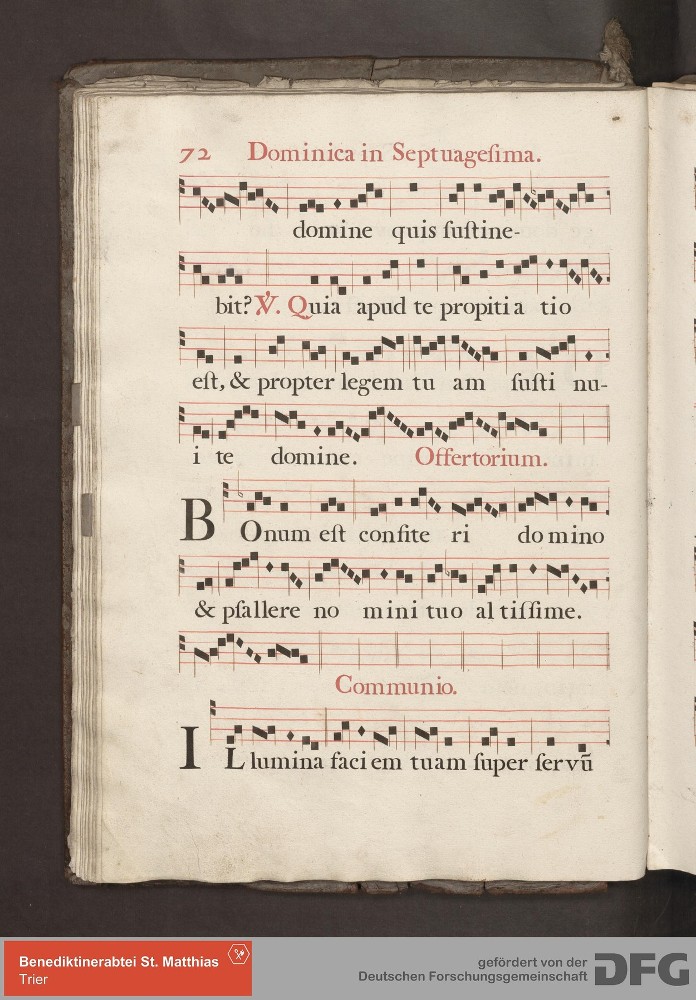 72 Dominica in Septuageſima.
domine quis ſuſtine-
bit? ℣. Quia apud te propitia tio
eſt, & propter legem tu am ſuſti nu-
i te domine. Offertorium.
BOnum eſt conſite ri domino
& pſallere no mini tuo al tiſſime.
Communio.
IL lumina faci em tuam ſuper ſervū
Benediktinerabtei St. Matthias
Trier
gefördert von der
Deutschen Forschungsgemeinschaft DFG